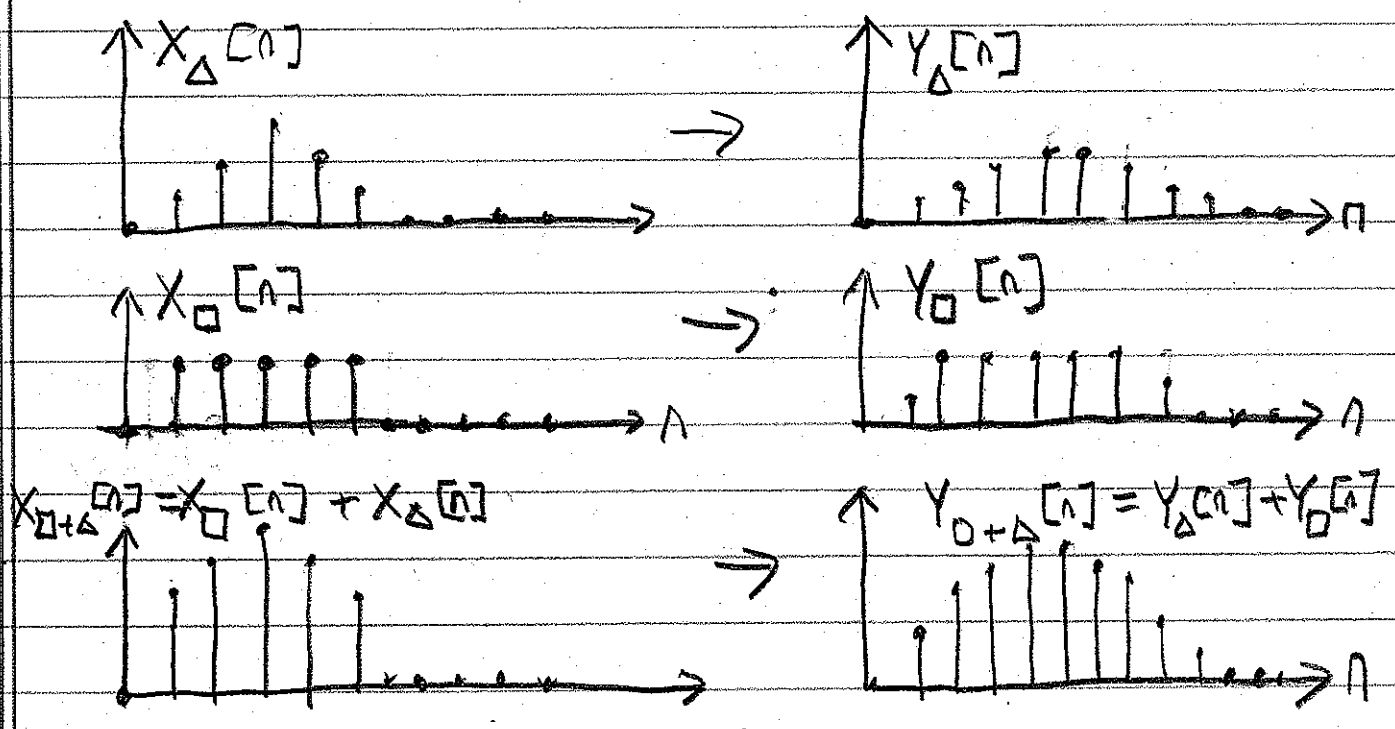 X_Δ [n] → Y_Δ [n]
n
X_□ [n] → Y_□ [n]
n n
X_□+Δ [n] = X_□ [n] + X_Δ [n] → Y_□+Δ [n] = Y_Δ [n] + Y_□ [n]
n